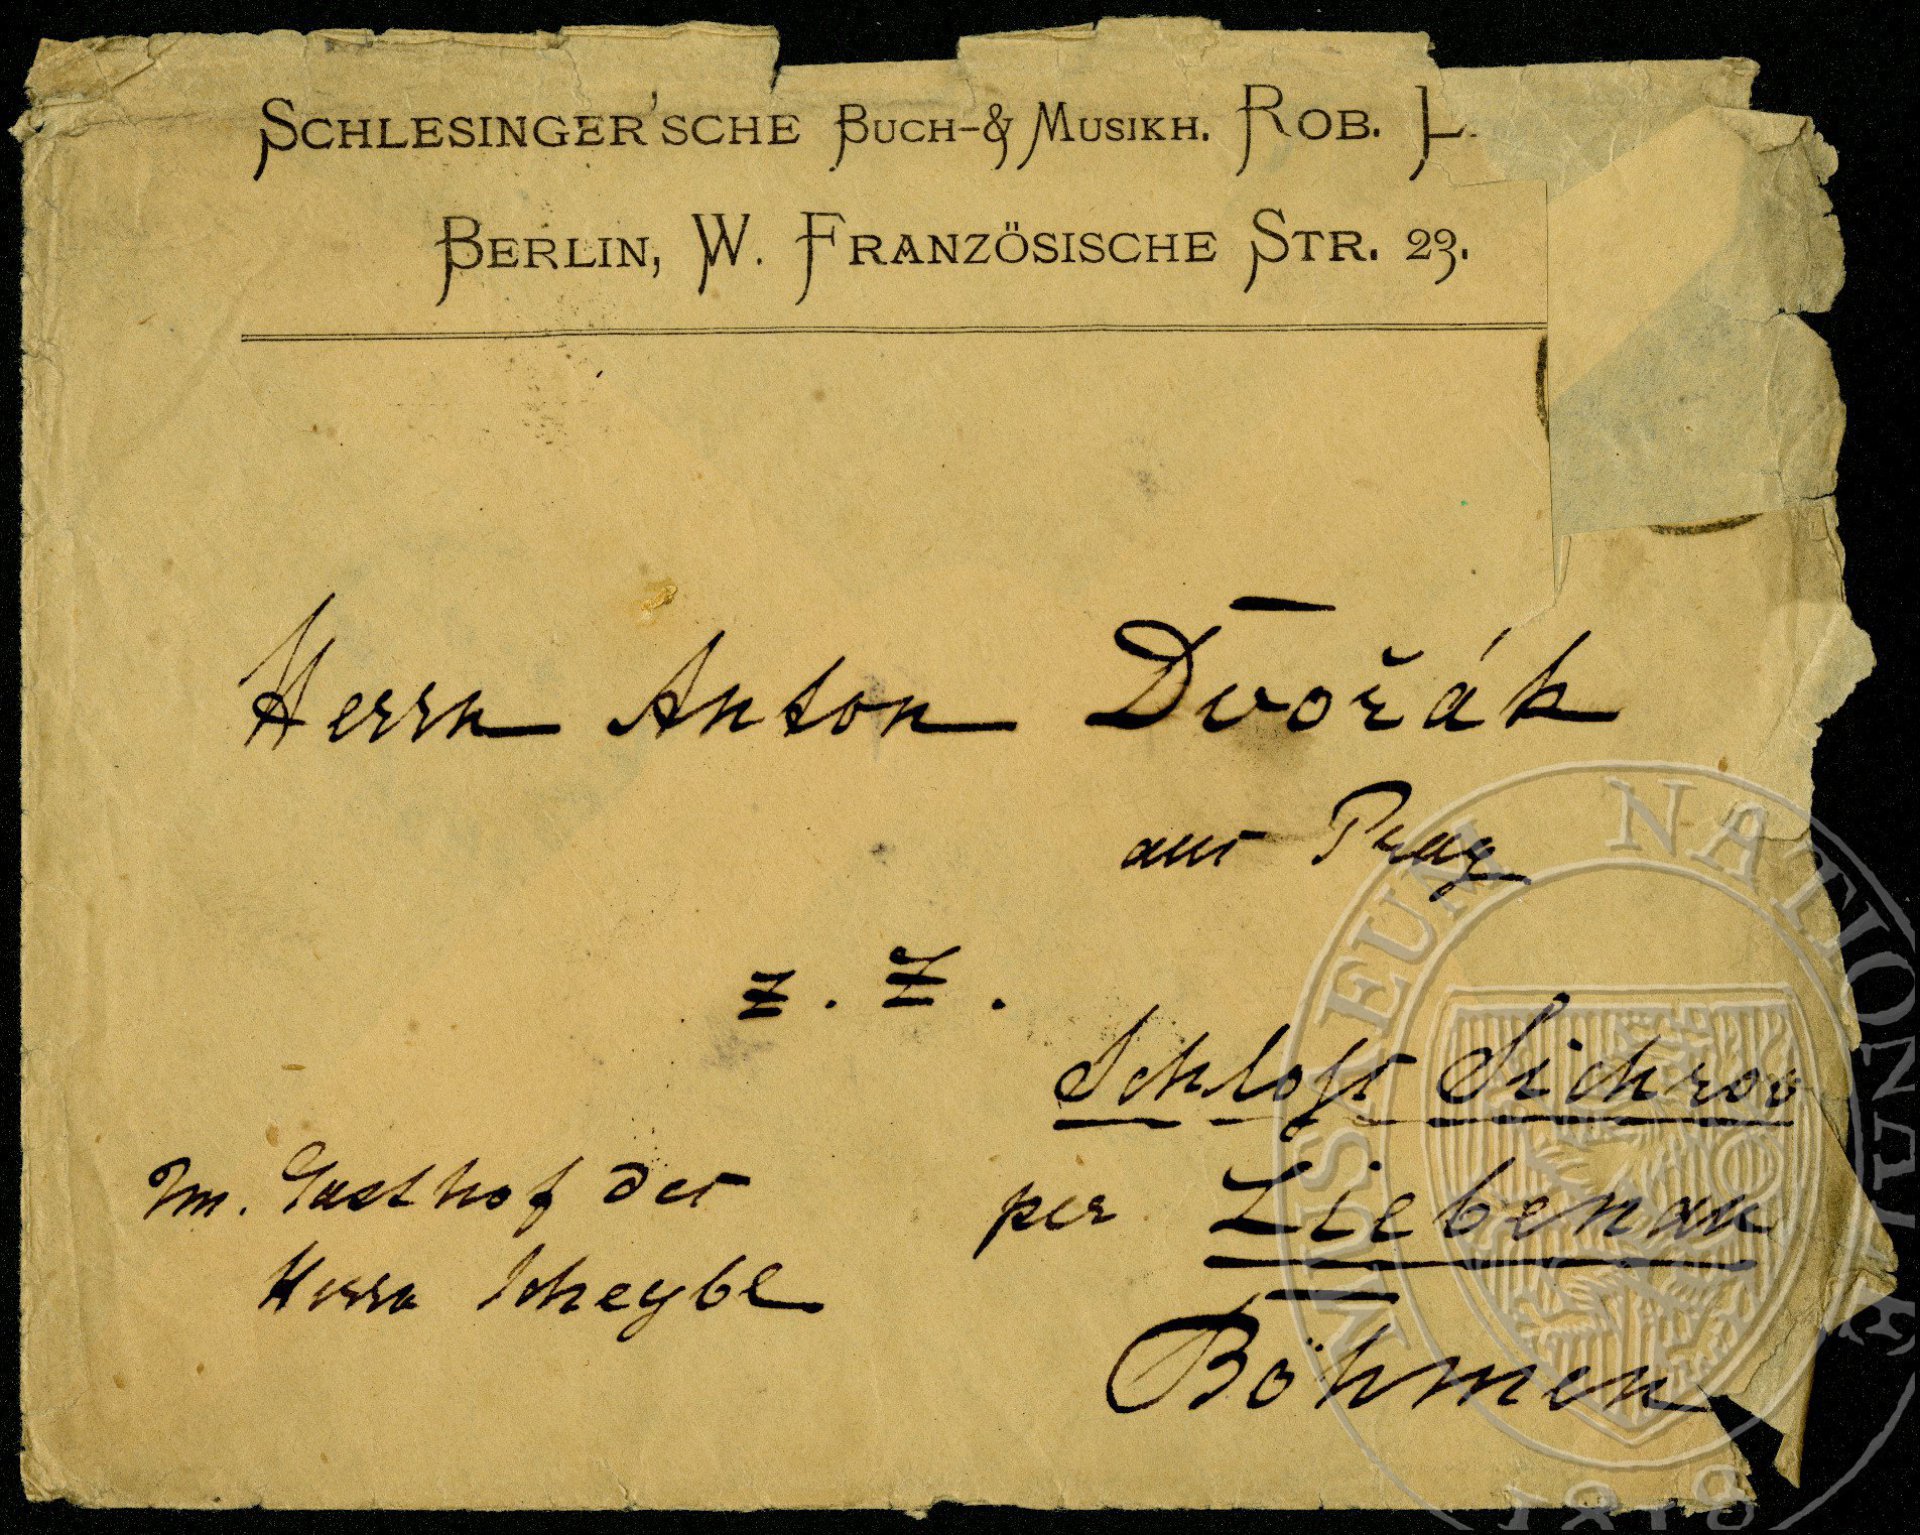 SCHLESINGER'SCHE BUCH-& MUSIKH. ROB. L
BERLIN, W. FRANZÖSISCHE STR. 23.
Herrn Anton Dvořák
aus Prag
z. Z.
Schloß Sichrov
Im. Gasthof des
per Liebenau
Herrn Scheybl
Böhmen
MUSEUM NATIONALE
1818